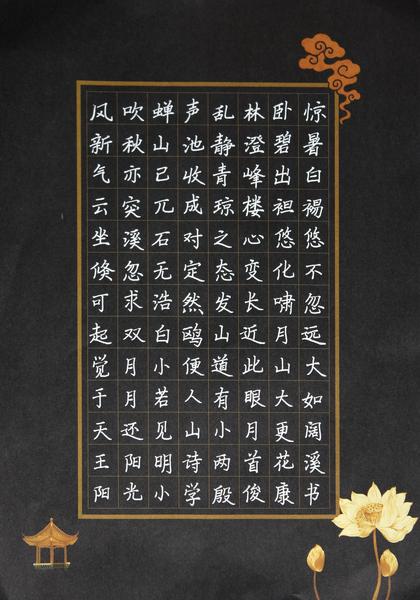 风吹蝉声乱林卧惊
新秋山池静澄碧暑
气亦已收青峰出白
云突兀成琼楼袒裼
坐溪石对之心悠悠
倏忽无定态变化不
可求浩然发长啸忽
起双白鸥山近月远
觉月小便道此山大
于月若人有眼大如
天还见山小月更阔
王阳明诗两首花溪
阳光小学殷俊康书